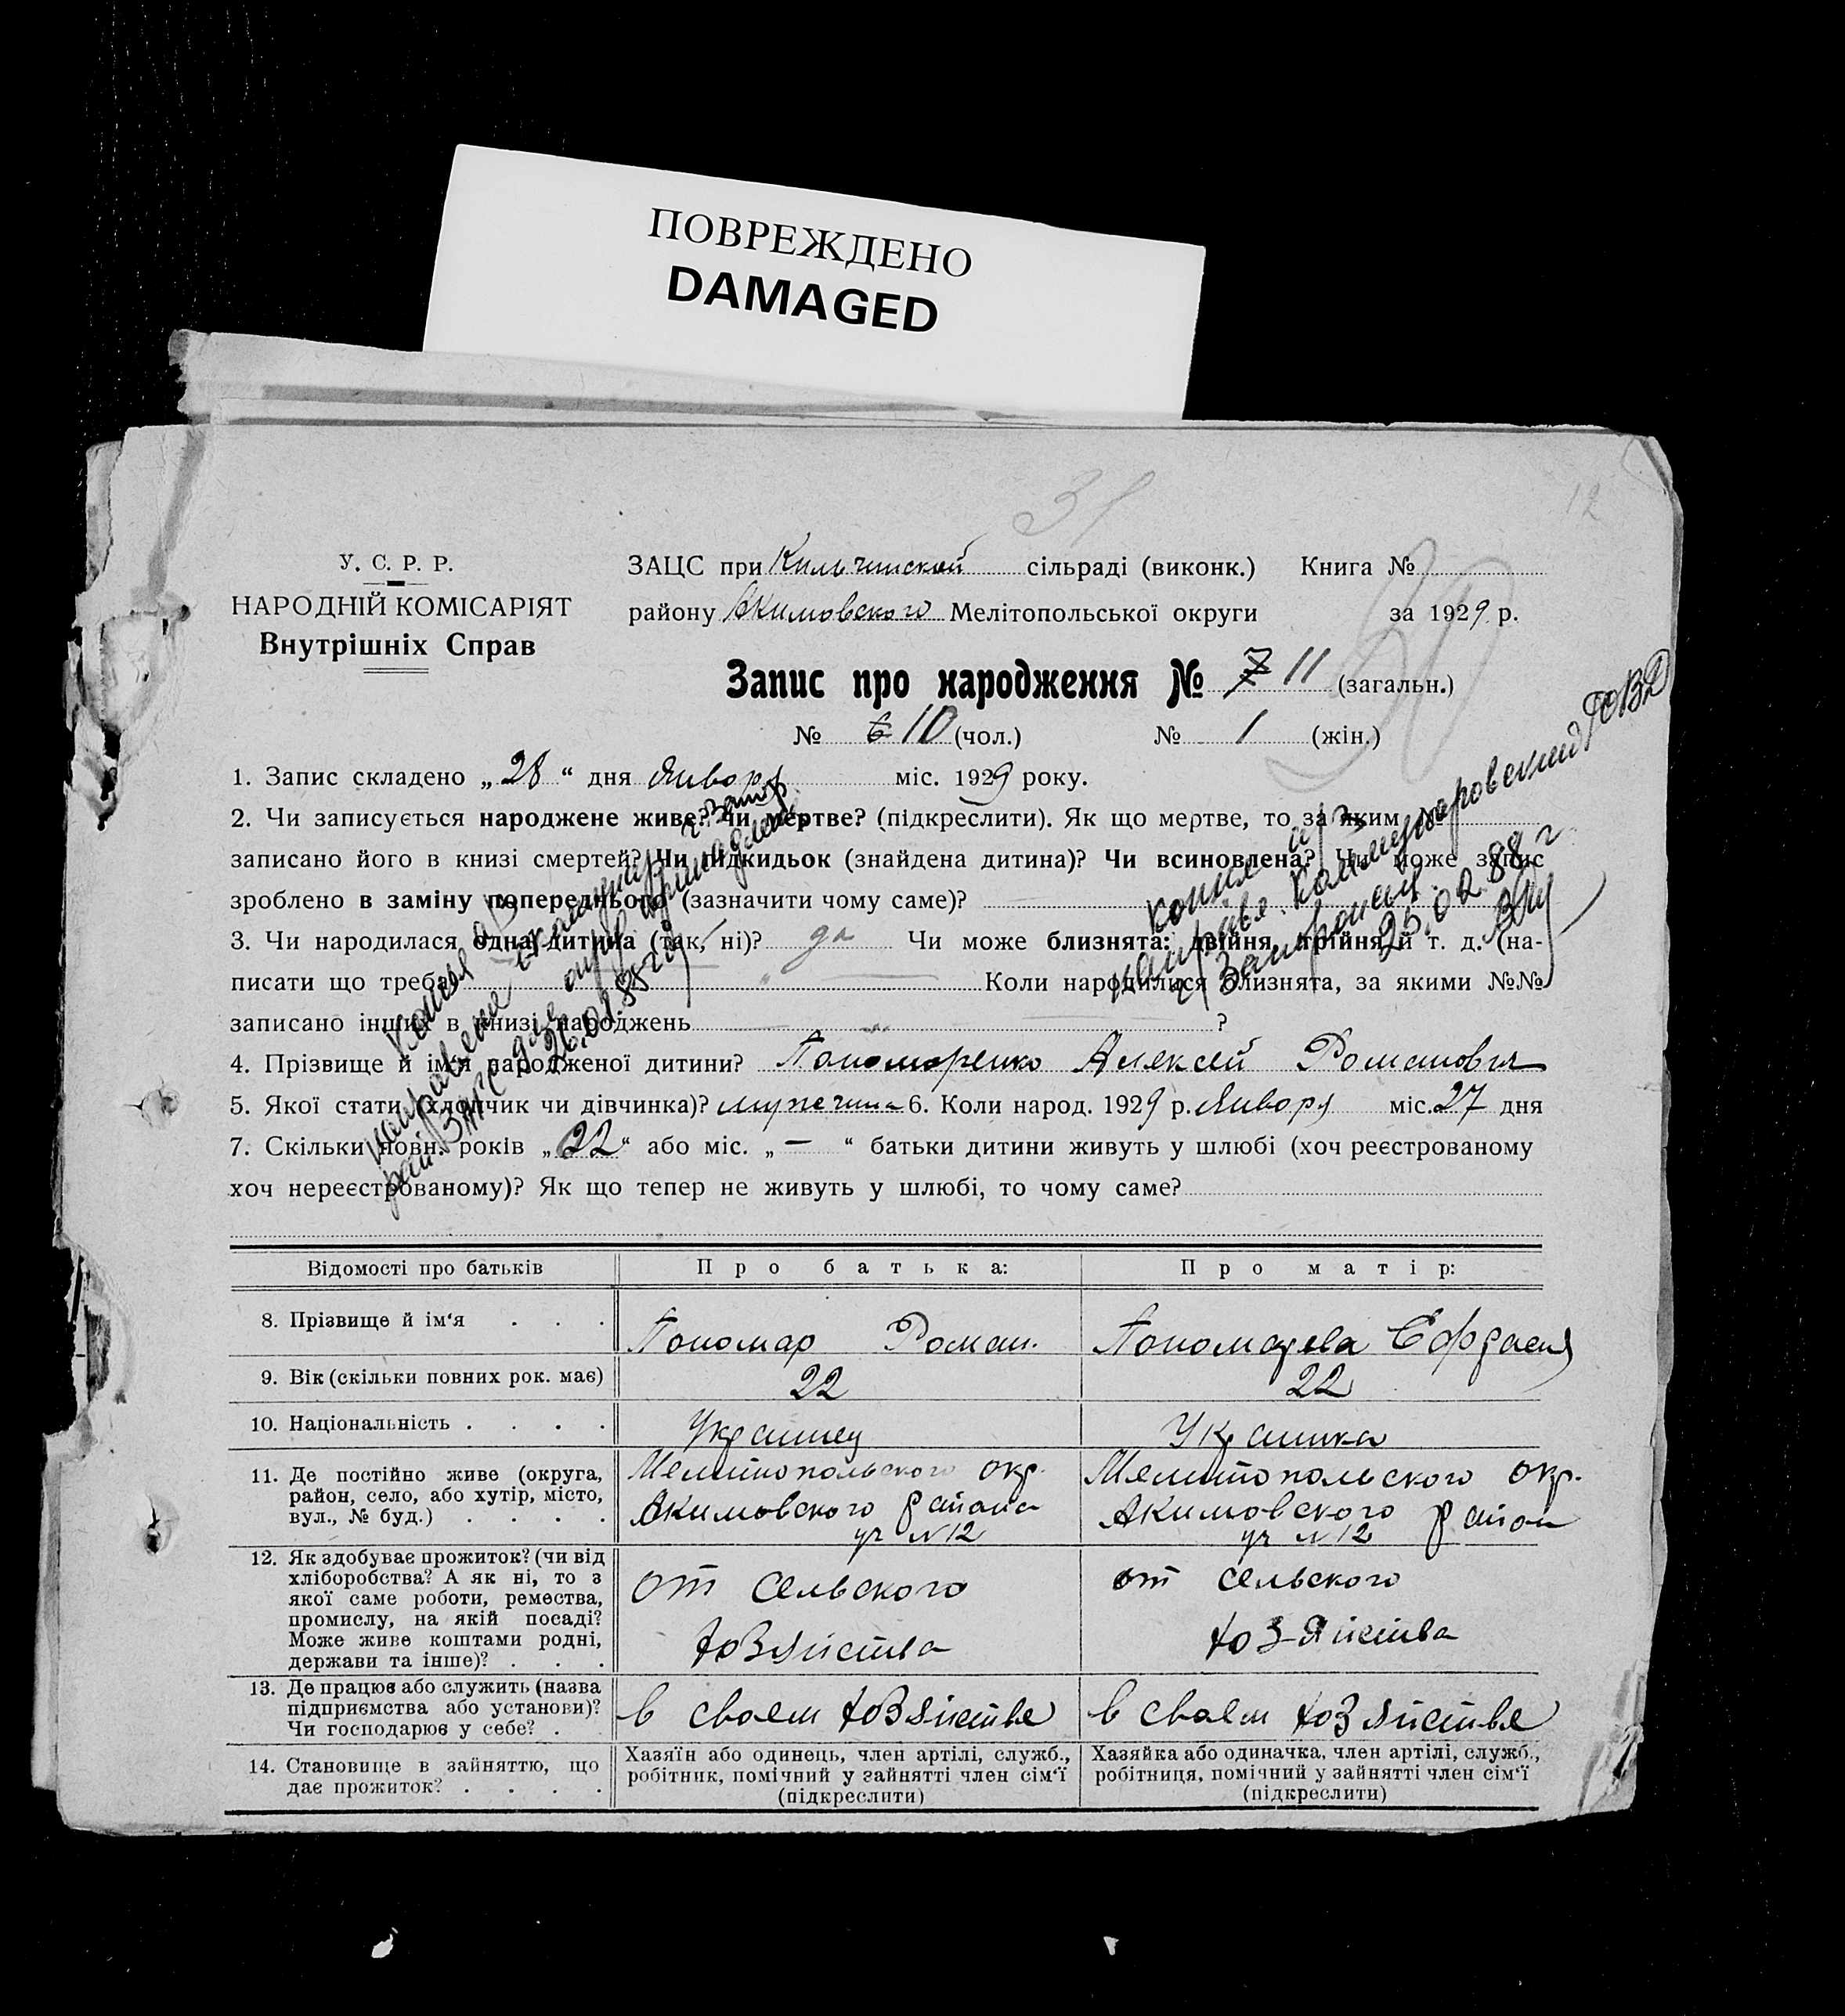 ПОВРЕЖДЕНО
DAMAGED
31
12
30
У. С. Р. Р.
НАРОДНІЙ КОМІСАРІЯТ
Внутрішніх Справ
ЗАЦС при Кильчинской сільраді (виконк.) Книга №
району Акимовского Мелітопольської округи за 1929 р.
Запис про народження № 7 11 (загальн.)
№ 6 10 (чол.) № 1 (жін.)
1. Запис складено „28“ дня Января міс. 1929 року.
2. Чи записується народжене живе? чи мертве? (підкреслити). Як що мертве, то за яким №
записано його в книзі смертей? Чи підкидьок (знайдена дитина)? Чи всиновлена? Чи може запис
зроблено в заміну попереднього? (зазначити чому саме)?
3. Чи народилася одна дитина (так, ні)? да Чи може близнята: двійня, трійня й т. д. (на-
писати що треба) Коли народилися близнята, за якими №№
записано інших в книзі народжень ?
4. Прізвище й ім'я народженої дитини? Пономоренко Алексей Романович
5. Якої стати (хлопчик чи дівчинка)? мужчина 6. Коли народ. 1929 р. Января міс. 27 дня
7. Скільки повн. років „22“ або міс. „—“ батьки дитини живуть у шлюбі (хоч реєстрованому
хоч нереєстрованому)? Як що тепер не живуть у шлюбі, то чому саме?
Копия а/з
направлена
райЗАГС для
26.01.88 г
копия а/з
направл. Коммунаровский РОВД
г Запорожья
25.02.88 г
Відомості про батьків Про батька: Про матір:
8. Прізвище й ім'я . . . Пономар Роман. Пономарева Ефрасия
9. Вік (скільки повних рок. має) 22 22
10. Національність . . . . Украинец Украинка
11. Де постійно живе (округа, район, село, або хутір, місто, вул., № буд.) . . . .
Мелитопольского окр.
Акимовского района
уч N 12
Мелитопольского окр.
Акимовского район
уч N 12
12. Як здобуває прожиток? (чи від хліборобства? А як ні, то з якої саме роботи, ремества, промислу, на якій посаді? Може живе коштами родні, держави та інше)? . . .
от сельского
хозяйства
от сельского
хозяйства
13. Де працює або служить (назва підприємства або установи)? Чи господарює у себе? .
в своем хозяйстве
в своем хозяйстве
14. Становище в зайняттю, що дає прожиток? . . . .
Хазяїн або одинець, член артілі, служб., робітник, помічний у зайнятті член сім'ї (підкреслити)
Хазяйка або одиначка, член артілі, служб., робітниця, помічний у зайнятті член сім'ї (підкреслити)